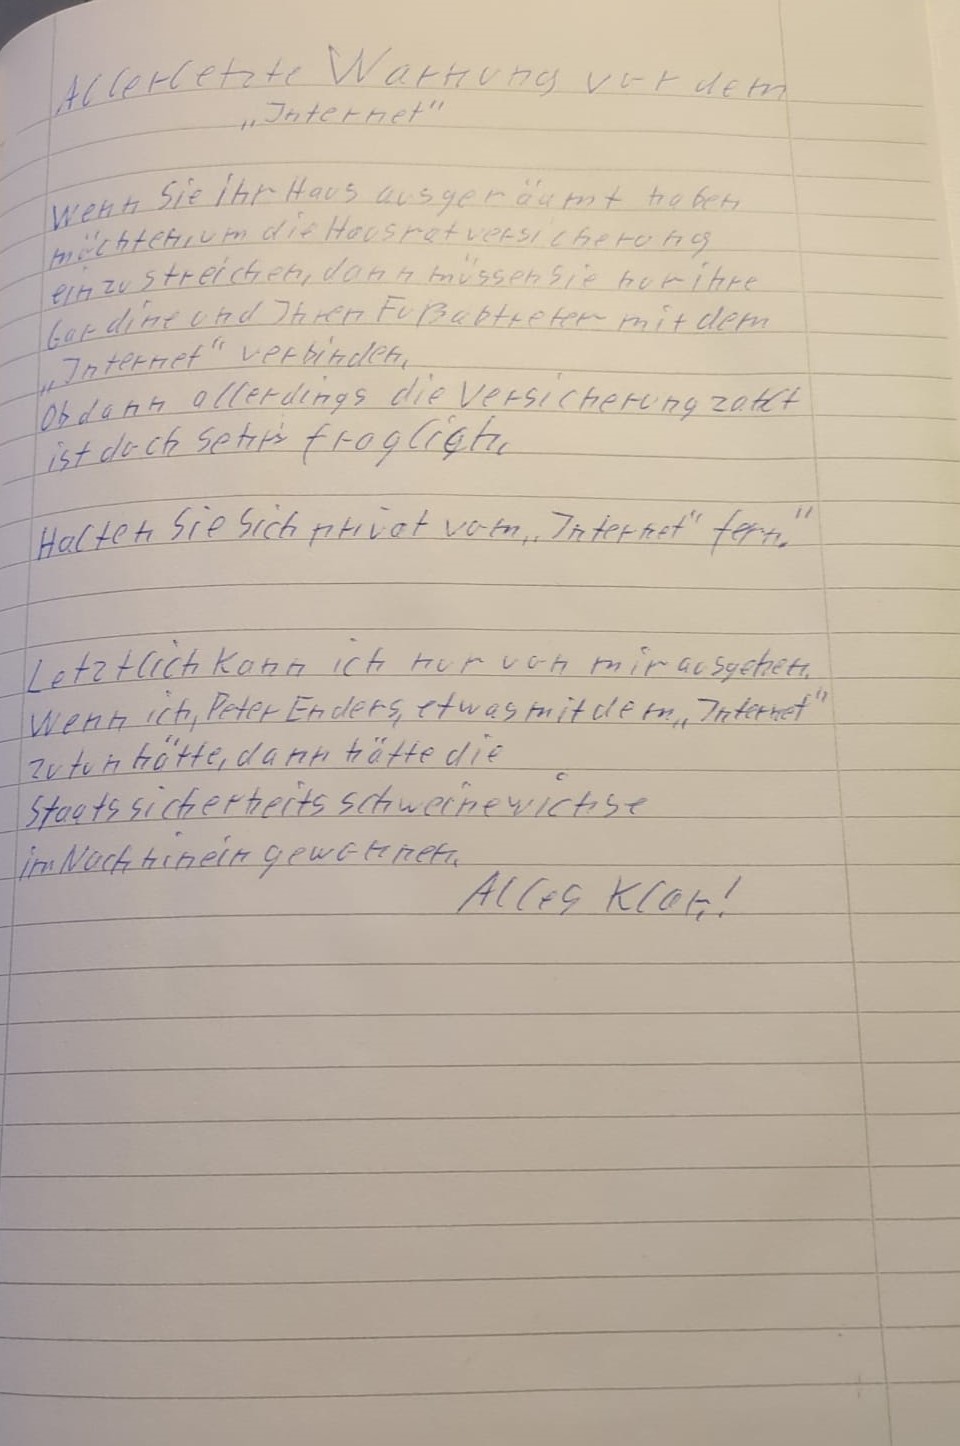 Allerletzte Warnung vor dem
„Internet“
Wenn Sie ihr Haus ausgeräumt haben
möchten, um die Hausratversicherung
einzustreichen, dann müssen Sie nur ihre
Gardine und Ihren Fußabtreter mit dem
„Internet“ verbinden.
Ob dann allerdings die Versicherung zahlt
ist doch sehr fraglich.
Halten Sie Sich privat vom „Internet“ fern.“
Letztlich kann ich nur von mir ausgehen.
Wenn ich, Peter Enders, etwas mit dem „Internet“
zu tun hätte, dann hätte die
Staatssicherheitsschweinewichse
im Nachhinein gewonnen.
Alles Klar!